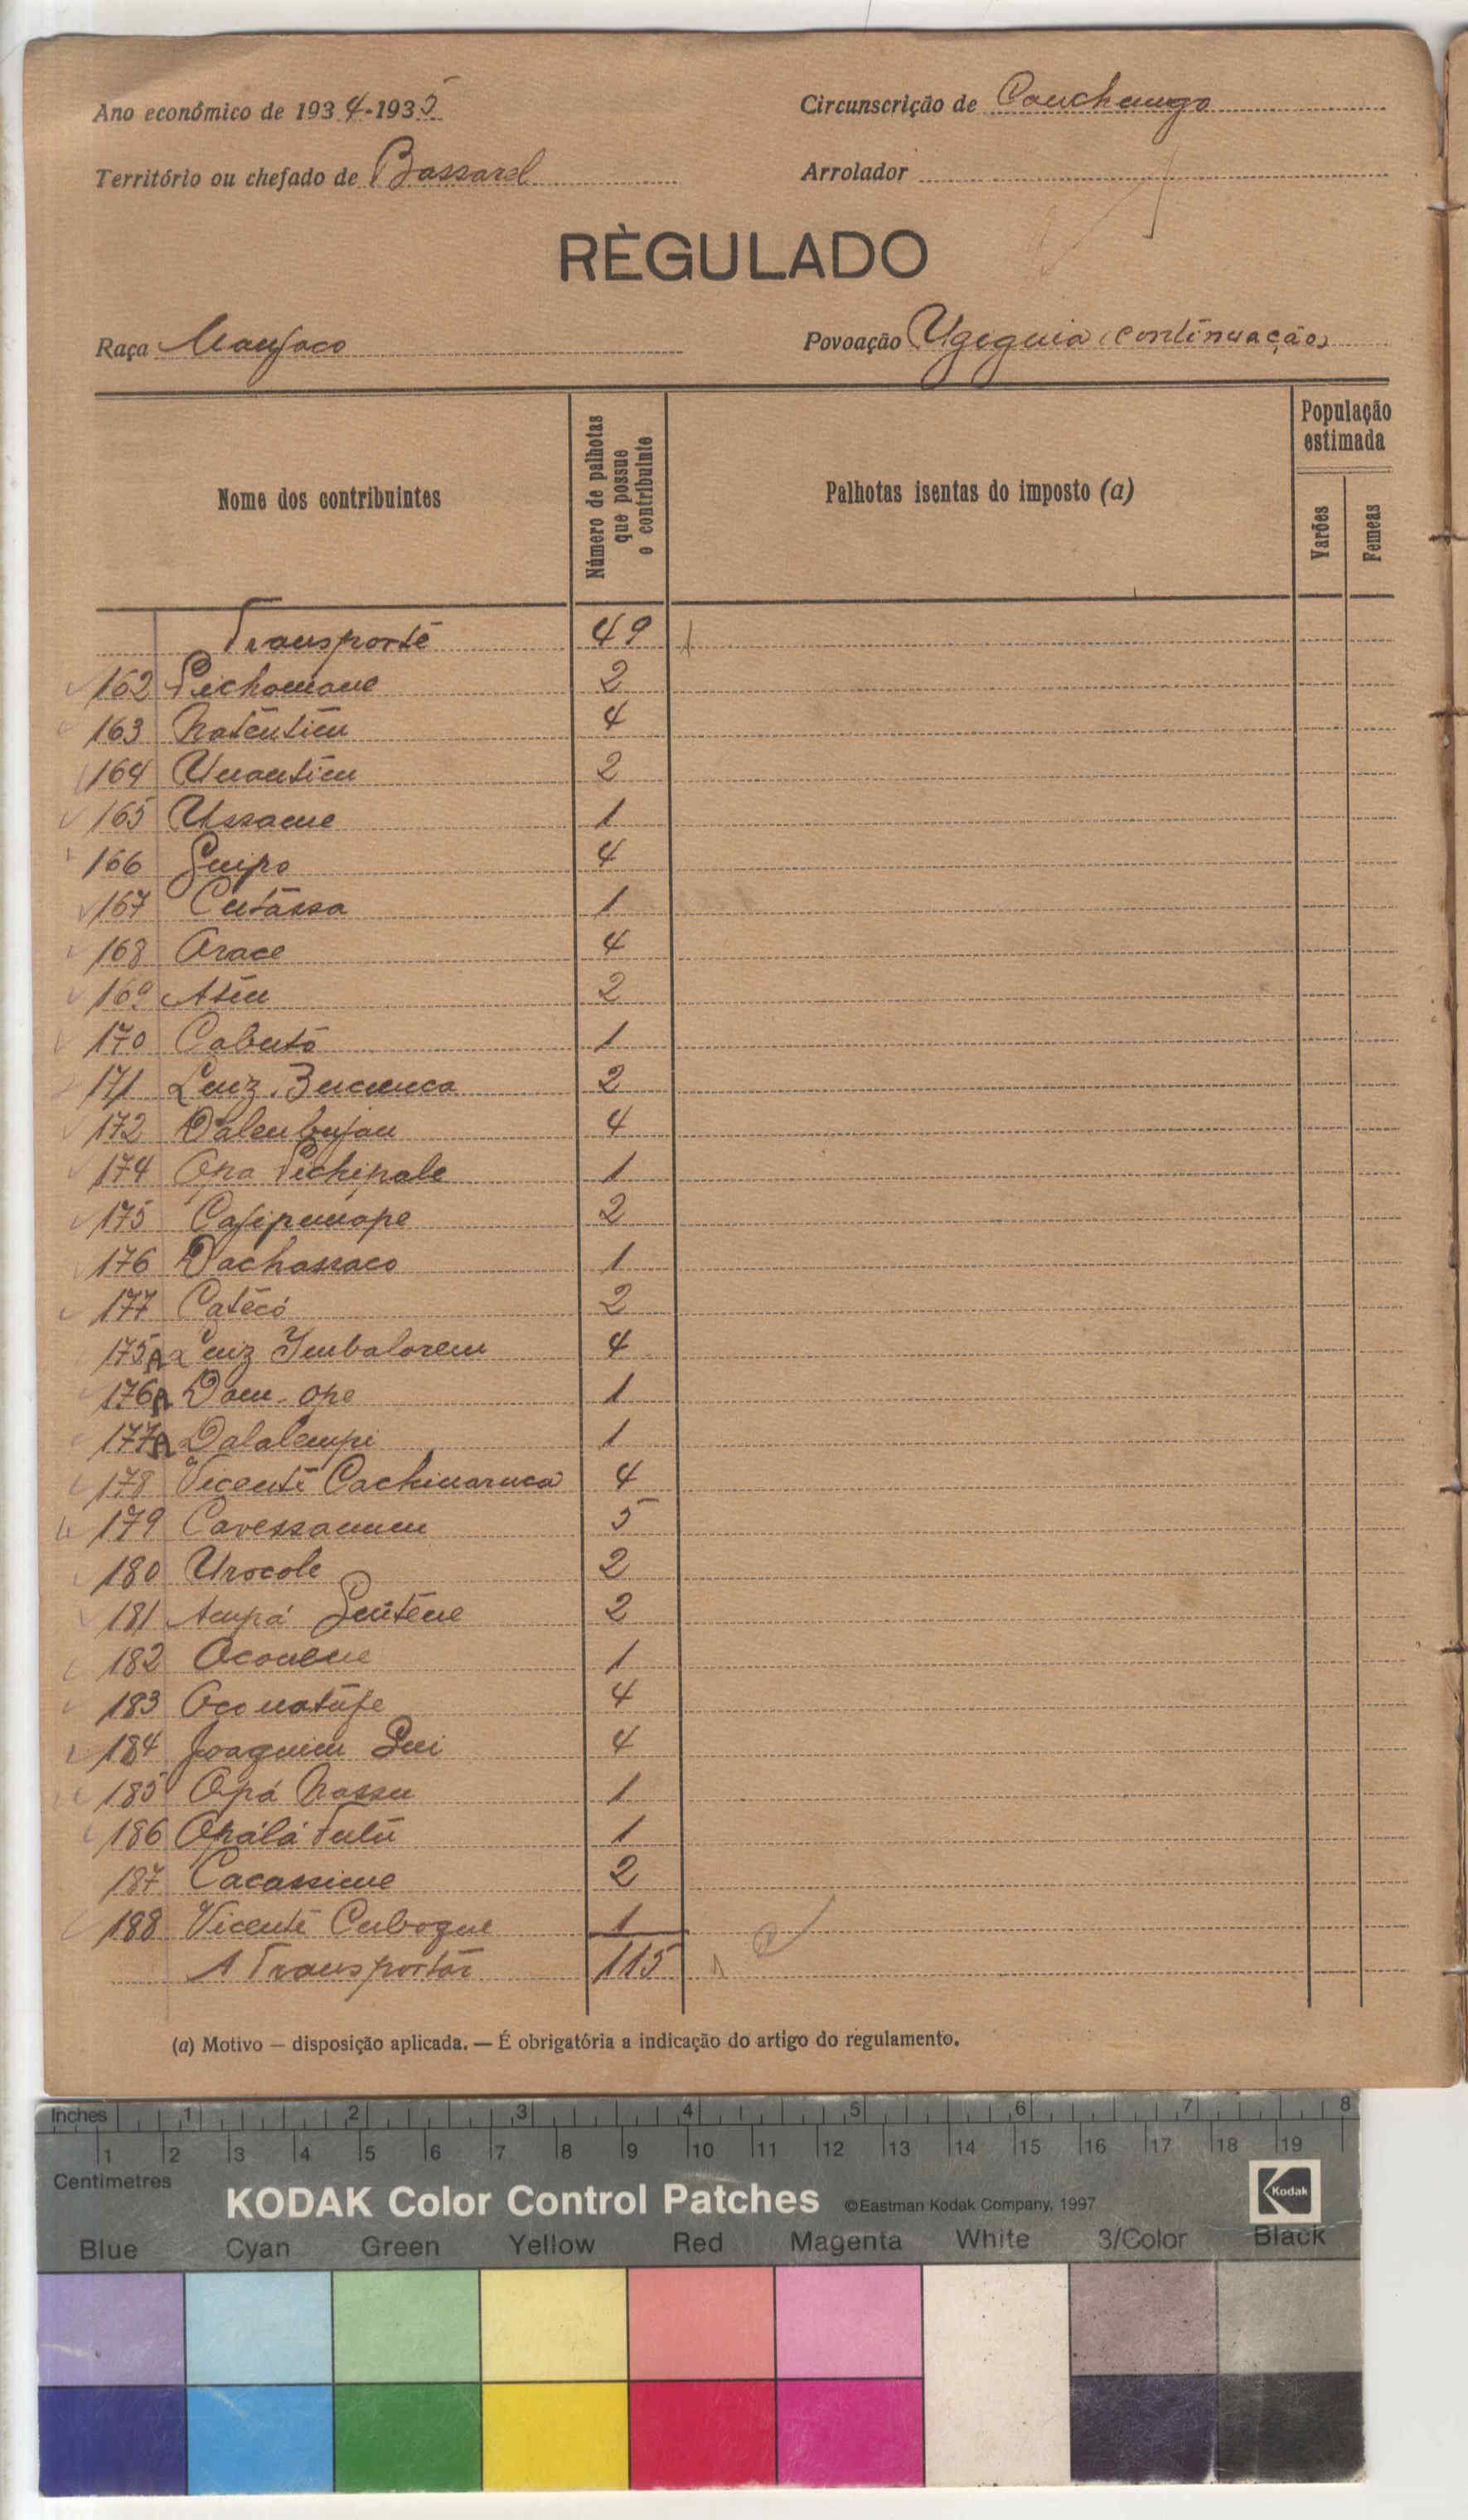 Ano económico de 1934-1935
Circunscrição de Canchungo
Território ou chefado de Bassarel
Arrolador
RÈGULADO
Raça Manjaco
Povoação Ugeguia (continuação)
Nome dos contribuintes
Número de palhotas que possue o contribuinte
Palhotas isentas do imposto (a)
População estimada
Varões
Femeas
Transporte 49
162 Pichomane 2
163 Natentim 4
164 Unantim 2
165 Ussame 1
166 Guipo 4
167 Cutassa 1
168 Arace 4
169 Atim 2
170 Cabutó 1
171 Luiz Bucunca 2
172 Dalembujan 4
174 Opa Pichipale 1
175 Cafipunope 2
176 Dachassaco 1
177 Catécó 2
175A Luiz Imbalorem 4
176A Dom-Ope 1
177A Dalalempi 1
178 Vicente Cachinaruca 4
179 Cavessamum 5
180 Urocole 2
181 Ampá Guitene 2
182 Oconene 1
183 Oco natufe 4
184 Joaquim Gui 4
185 Opá Nassu 1
186 Opálá Tulu 1
187 Cacassime 2
188 Vicente Cuboque 1
A Transportar 115
(a) Motivo — disposição aplicada. — É obrigatória a indicação do artigo do regulamento.
Inches 1 2 3 4 5 6 7 8
1 2 3 4 5 6 7 8 9 10 11 12 13 14 15 16 17 18 19
Centimetres
KODAK Color Control Patches ©Eastman Kodak Company, 1997 Kodak
Blue Cyan Green Yellow Red Magenta White 3/Color Black